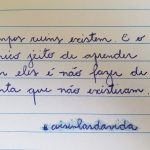 mpos ruins existem. E o
nico jeito de aprender
m eles é não fazer de
nta que não existiram.
#avisinhardavida